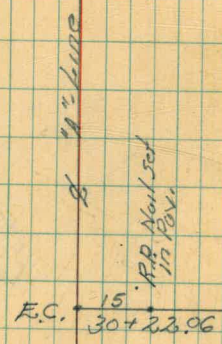 ℄ "A" Line
R.R. Nail set
in Pav.
E.C. 15
30+22.06